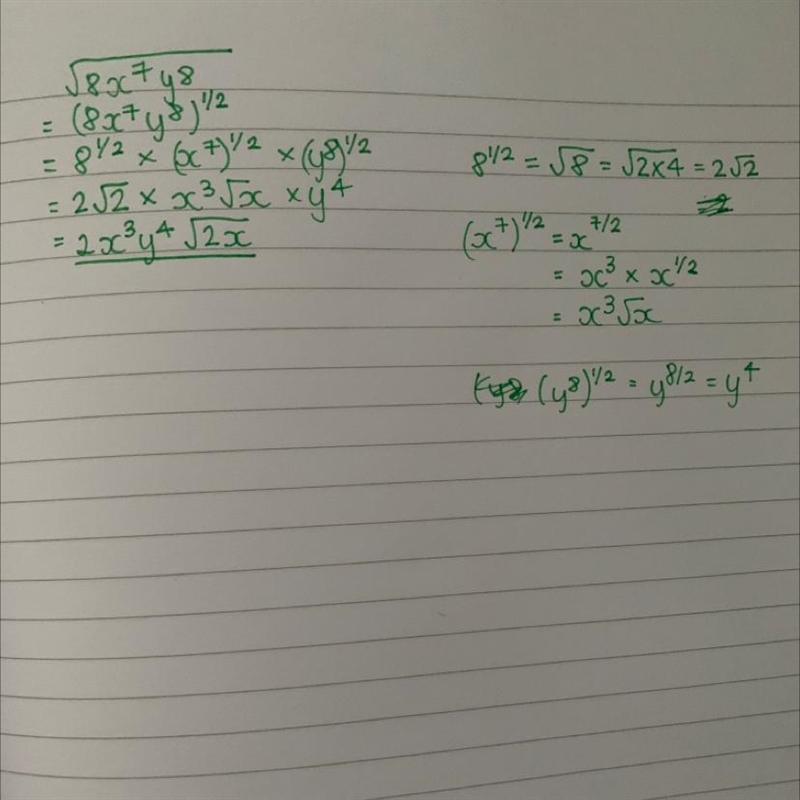 √8x⁷y8
= (8x⁷y⁸)^1/2
= 8^1/2 × (x⁷)^1/2 × (y⁸)^1/2
= 2√2 × x³√x × y⁴
= 2x³y⁴√2x
8^1/2 = √8 = √2×4 = 2√2
(x⁷)^1/2 = x^7/2
= x³ × x^1/2
= x³√x
(y⁸)^1/2 = y^8/2 = y⁴